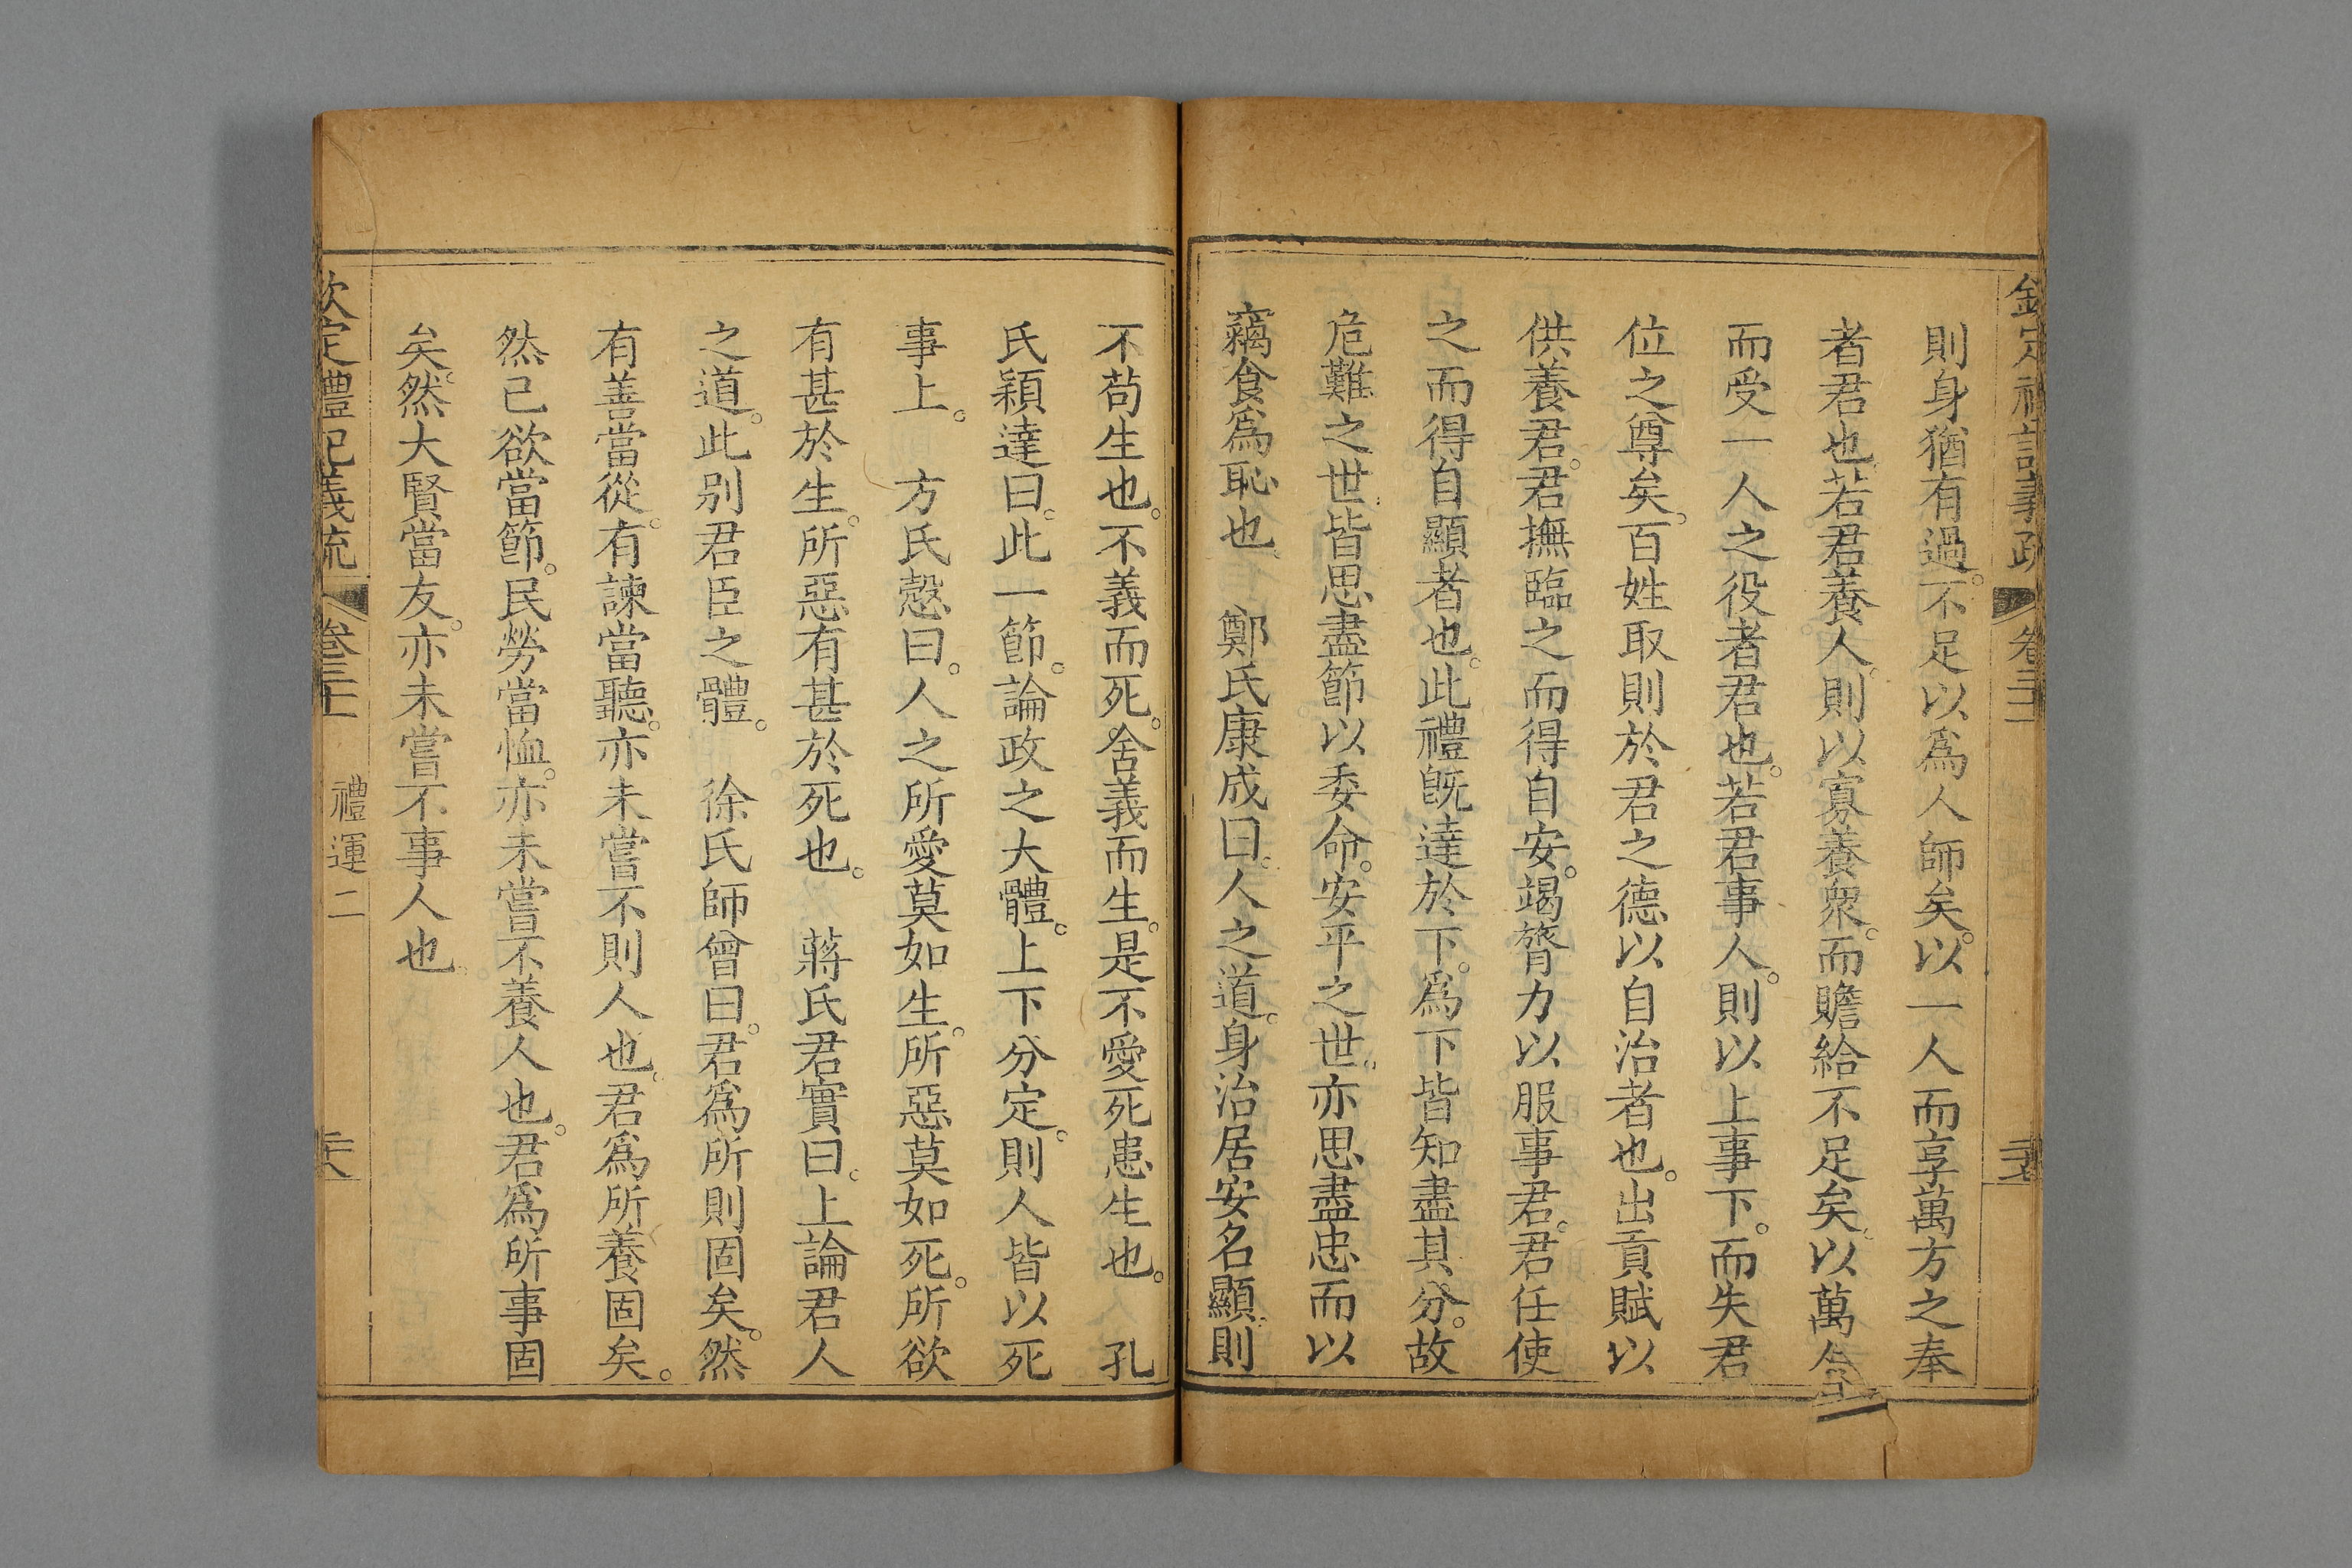 欽定禮記義疏 卷三十一
則身猶有過。不足以爲人師矣。以一人而享萬方之奉
者君也。若君養人。則以寡養衆。而贍給不足矣。以萬
而受一人之役者君也。若君事人。則以上事下。而失君
位之尊矣。百姓取則於君之德以自治者也。出貢賦以
供養君。君撫臨之而得自安。竭膂力以服事君。君任使
之而得自顯者也。此禮旣達於下。爲下皆知盡其分。故
危難之世。皆思盡節以委命。安平之世。亦思盡忠而以
竊食爲恥也。 鄭氏康成曰。人之道。身治居安名顯。則
不苟生也。不義而死。舍義而生。是不愛死患生也。 孔
氏穎達曰。此一節。論政之大體。上下分定。則人皆以死
事上。 方氏慤曰。人之所愛莫如生。所惡莫如死。所欲
有甚於生。所惡有甚於死也。 蔣氏君實曰。上論君人
之道。此别君臣之體。 徐氏師曾曰。君爲所則固矣。然
有善當從。有諫當聽。亦未嘗不則人也。君爲所養固矣。
然已欲當節。民勞當恤。亦未嘗不養人也。君爲所事固
矣。然大賢當友。亦未嘗不事人也。
欽定禮記義疏 卷三十一 禮運二